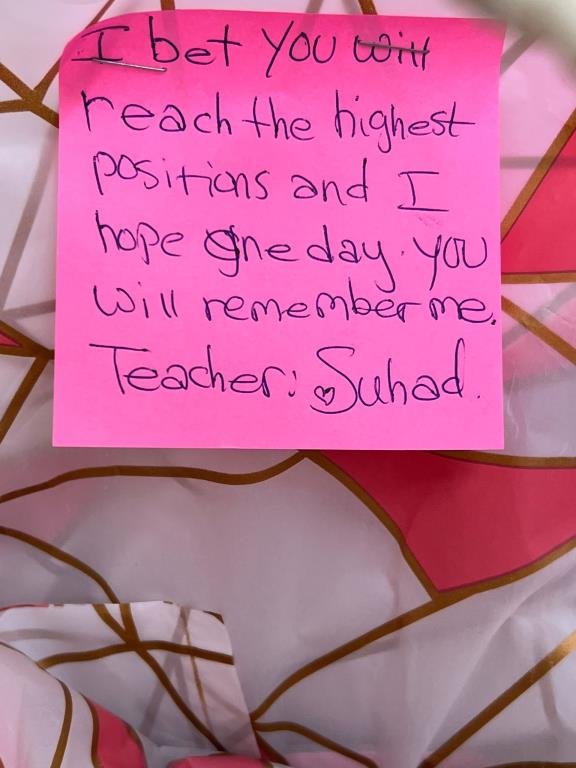 I bet you will
reach the highest
positions and I
hope one day you
will remember me.
Teacher: Suhad.